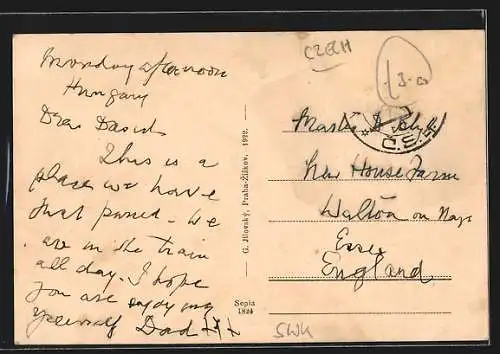 Monday afternoon
Hungary
Dear David
This is a
place we have
Just passed - We
are in the train
all day. I hope
you are enjoying
yourself Dad xxx
G. Jilovský, Praha-Žižkov. 1922.
Sepia
1824
CZECH
£3-00
Č.S.P.
Master D
New House Farm
Walton on Naze
Essex
England
SWK